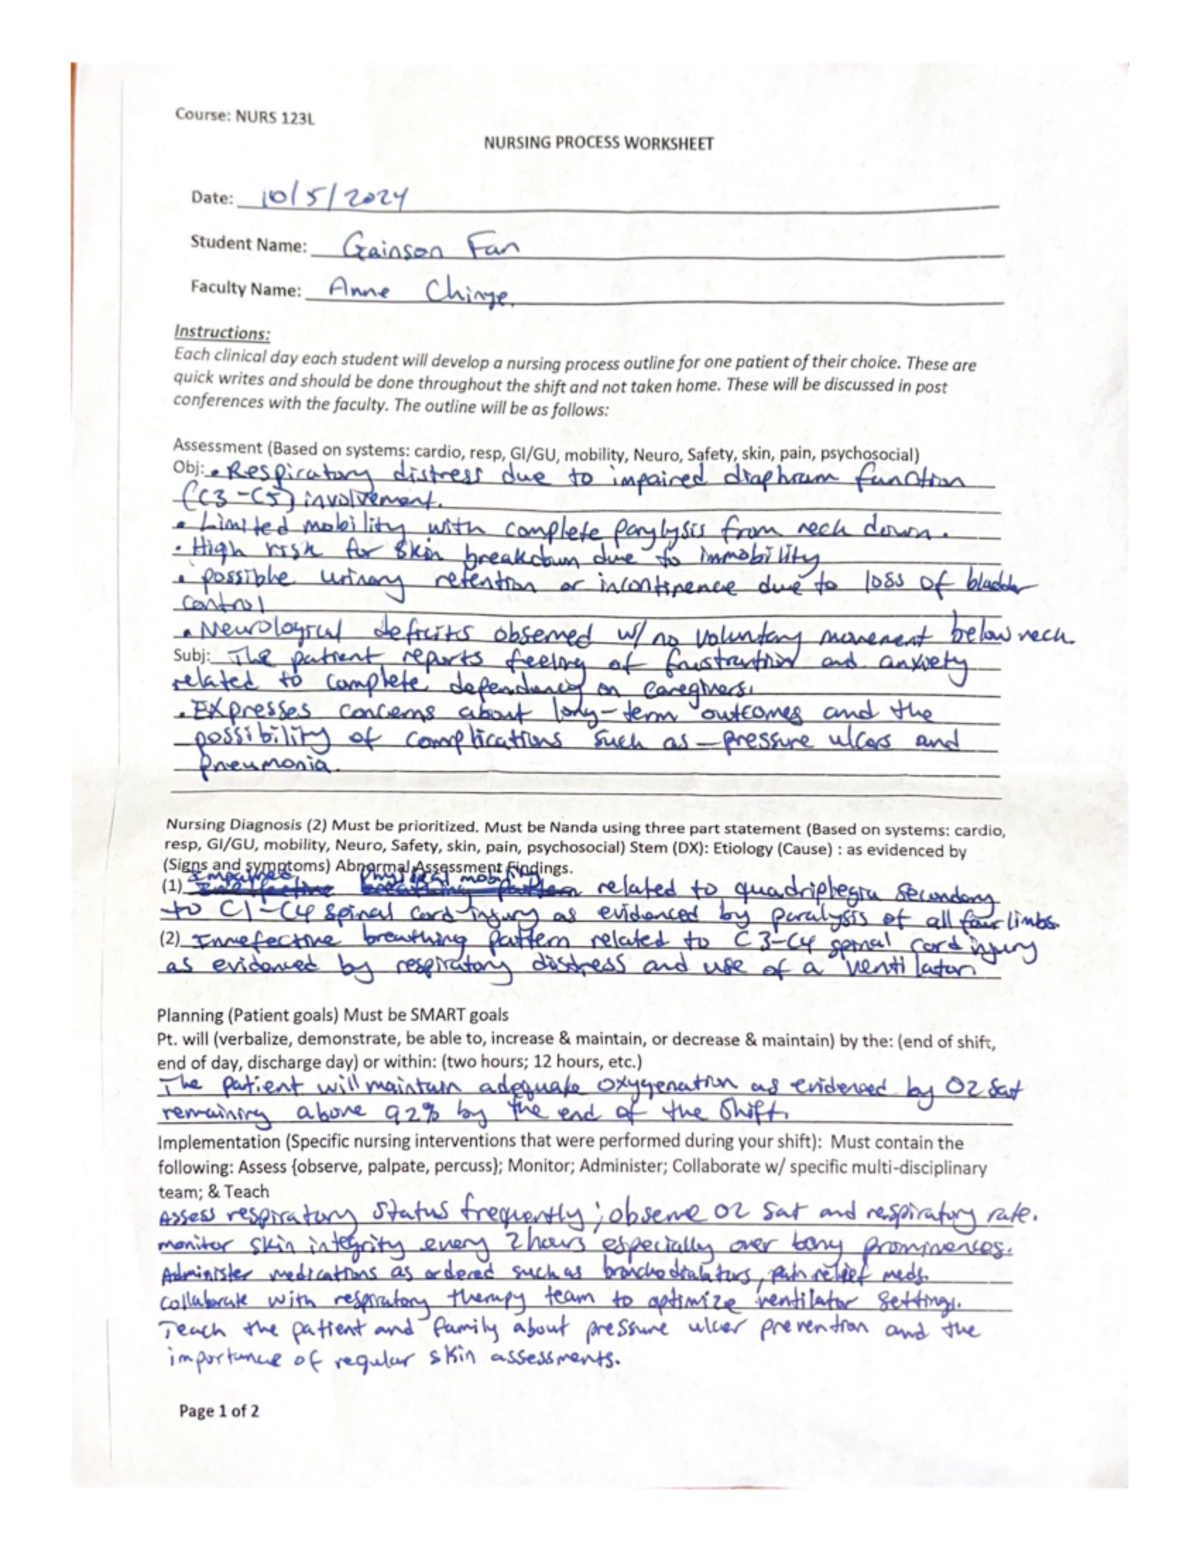 Course: NURS 123L
NURSING PROCESS WORKSHEET
Date: 10/5/2024
Student Name: Gainson Fan
Faculty Name: Anne Chinye.
Instructions:
Each clinical day each student will develop a nursing process outline for one patient of their choice. These are
quick writes and should be done throughout the shift and not taken home. These will be discussed in post
conferences with the faculty. The outline will be as follows:
Assessment (Based on systems: cardio, resp, GI/GU, mobility, Neuro, Safety, skin, pain, psychosocial)
Obj: • Respiratory distress due to impaired diaphram function
(C3-C5) involvement.
• Limited mobility with complete parylysis from neck down.
• High risk for skin breakdown due to immobility
• possible urinary retention or incontinence due to loss of bladder
control
• Neurological deficits observed w/ no voluntary movement below neck.
Subj: The patient reports feeling of frustration and anxiety
related to complete dependency on caregivers.
• Expresses concerns about long-term outcomes and the
possibility of complications such as - pressure ulcers and
pneumonia.
Nursing Diagnosis (2) Must be prioritized. Must be Nanda using three part statement (Based on systems: cardio,
resp, GI/GU, mobility, Neuro, Safety, skin, pain, psychosocial) Stem (DX): Etiology (Cause) : as evidenced by
(Signs and symptoms) Abnormal Assessment Findings.
Impaired physical mobility
(1) Ineffective breathing pattern related to quadriplegia secondary
to C1-C4 spinal cord injury as evidenced by paralysis of all four limbs.
(2) Innefective breathing pattern related to C3-C4 spinal cord injury
as evidenced by respiratory distress and use of a ventilator.
Planning (Patient goals) Must be SMART goals
Pt. will (verbalize, demonstrate, be able to, increase & maintain, or decrease & maintain) by the: (end of shift,
end of day, discharge day) or within: (two hours; 12 hours, etc.)
The patient will maintain adequate oxygenation as evidenced by O2 sat
remaining above 92% by the end of the shift.
Implementation (Specific nursing interventions that were performed during your shift): Must contain the
following: Assess {observe, palpate, percuss}; Monitor; Administer; Collaborate w/ specific multi-disciplinary
team; & Teach
Assess respiratory status frequently; observe O2 sat and respiratory rate.
monitor skin integrity every 2 hours especially over bony prominences.
Administer medications as ordered such as bronchodialators, pain relief meds.
collaborate with respiratory therapy team to optimize ventilator settings.
Teach the patient and family about pressure ulcer prevention and the
importance of regular skin assessments.
Page 1 of 2